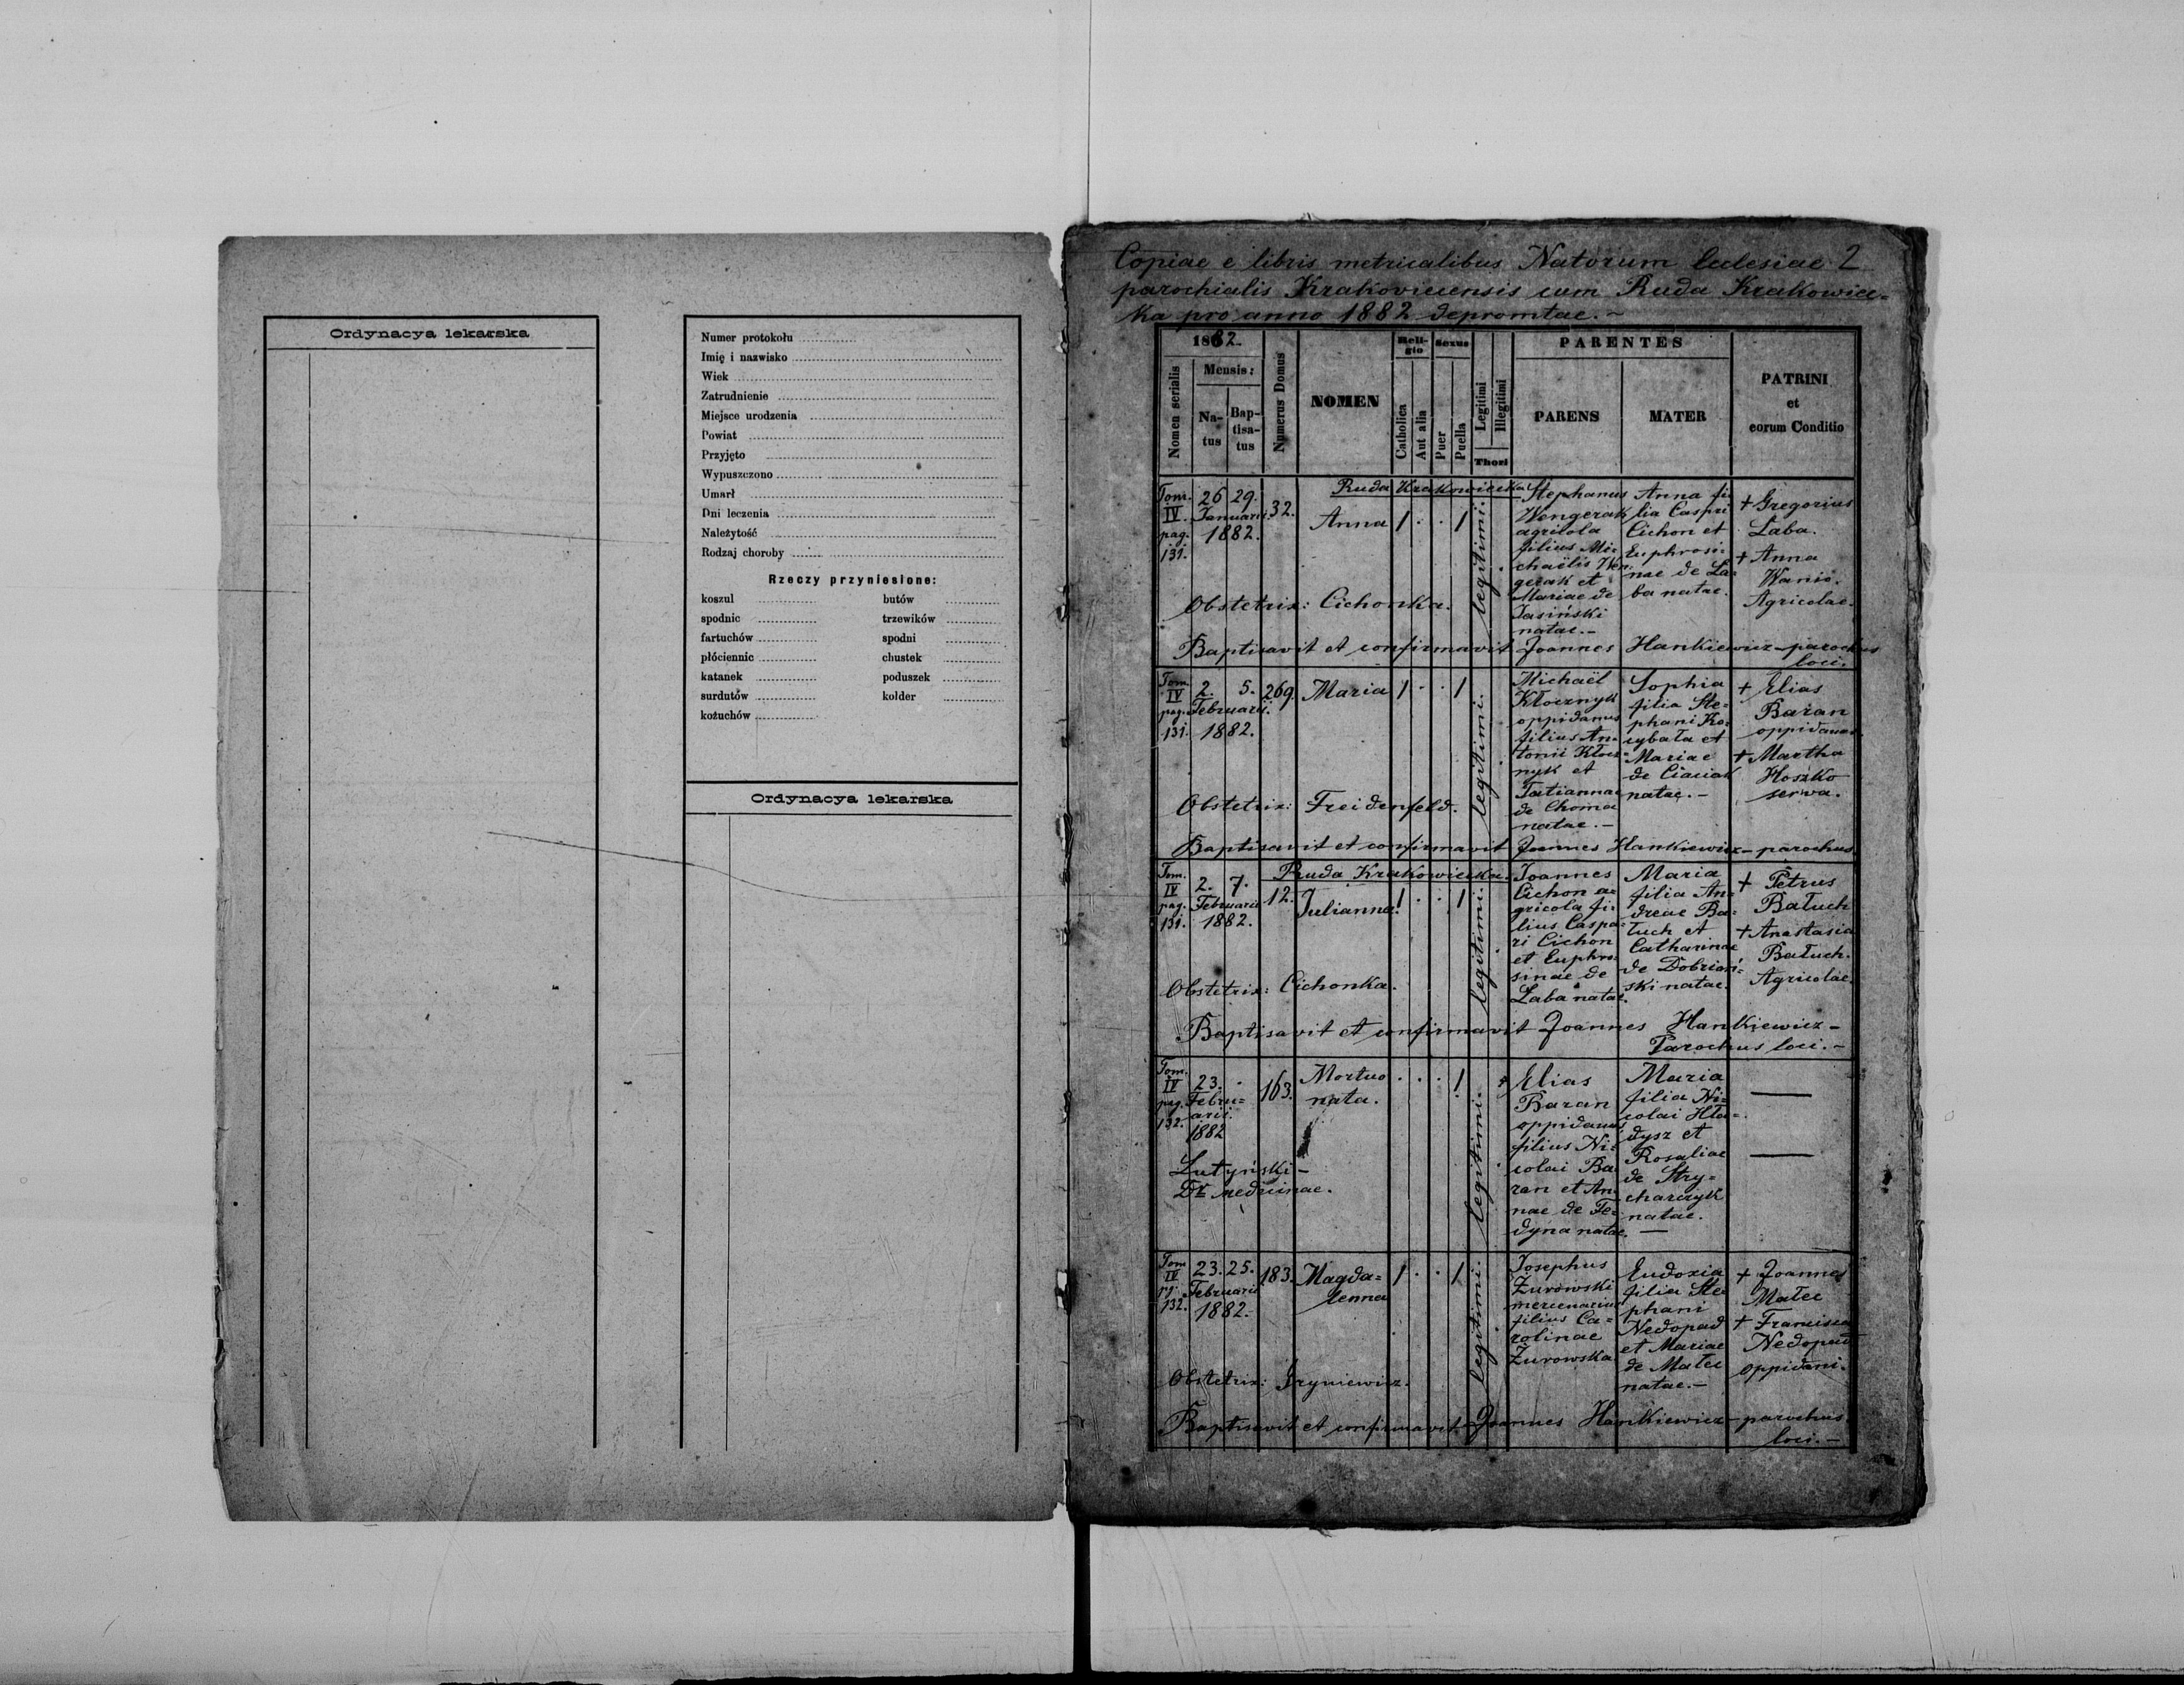 Ordynacya lekarska
Numer protokołu
Imię i nazwisko
Wiek
Zatrudnienie
Miejsce urodzenia
Powiat
Przyjęto
Wypuszczono
Umarł
Dni leczenia
Należytość
Rodzaj choroby
Rzeczy przyniesione:
koszul butów
spodnic trzewików
fartuchów spodni
płóciennic chustek
katanek poduszek
surdutów kołder
kożuchów
Ordynacya lekarska
Copiae e libris metricalibus Natorum Eclesiae 2
parochialis Krakoviecensis cum Ruda Krakowiec=
ka pro anno 1882 depromtae.-
1882.
Nomen serialis
Mensis:
Na-
tus
Bap-
tisa-
tus
Numerus Domus
NOMEN
Reli-
gio
Catholica
Aut alia
Sexus
Puer
Puella
Legitimi
Illegitimi
Thori
PARENTES
PARENS
MATER
PATRINI
et
eorum Conditio
Tom.
IV.
pag.
131.
26 29.
Januarii
1882.
32.
Ruda Krakowiecka
Anna
1 . . 1
legitimi.
Stephanus
Wengerak
agricola
filius Mi-
chaëlis Wen
gerak et
Mariae de
Jasiński
natae.-
Anna fi
lia Caspri
Cichon et
Euphrosi-
nae de La-
ba natae.
+ Gregorius
Łaba.
+ Anna
Wanio.
Agricolae.
Obstetrix: Cichonka.
Baptisavit et confirmavit Joannes Hankiewicz - parochus
loci.
Tom.
IV
pag.
131.
2. 5.
Februarii.
1882.
269.
Maria
1 . . 1
legitimi.
Michaël
Kłocznyk
oppidanus
filius An-
tonii Kłocz-
nyk et
Tatiannae
de Choma
natae.-
Sophia
filia Ste-
phani Ko-
cybała et
Mariae
de Ciaciak
natae.-
+ Elias
Baran
oppidanus
+ Martha
Hoszko
serva.
Obstetrix: Freidenfeld.
Baptisavit et confirmavit Joannes Hankiewicz - parochus
Tom.
IV
pag.
131.
2. 7.
Februarii
1882.
12.
Ruda Krakowiecka.
Julianna.
1 . . 1
legitimi.
Joannes
Cichon a=
gricola fi-
lius Caspa-
ri Cichon
et Euphro-
sinae de
Łaba natae.
Maria
filia An-
dreae Ba-
łuch et
Catharinae
de Dobriań=
ski natae.
+ Petrus
Bałuch
+ Anastasia
Bałuch.
Agricolae.
Obstetrix: Cichonka.
Baptisavit et confirmavit Joannes Hankiewicz -
Parochus loci.-
Tom.
IV
pag.
132.
23. .
Febru-
arii
1882
163.
Mortuo
nata.
. . . 1
legitimi.
Elias
Baran
oppidanus
filius Ni-
colai Ba
ran et An
nae de Fe-
dyna natae.
Maria
filia Ni-
colai Hła=
dysz et
Rosaliae
de Stry-
charczyk
natae.
Lutyński -
Dr medicinae.
Tom
IV
pg.
132.
23. 25.
Februarii
1882.
183.
Magda=
lenna
1 . . 1
legitimi.
Josephus
Żurowski
mercenarius
filius Ca-
rolinae
Żurowska
Eudoxia
filia Ste
phani
Nedopad
et Mariae
de Malec
natae.-
+ Joannes
Malec
+ Francisca
Nedopad
oppidani.
Obstetrix: Hryniewicz.
Baptisavit et confirmavit Joannes Hankiewicz - parochus
loci.-